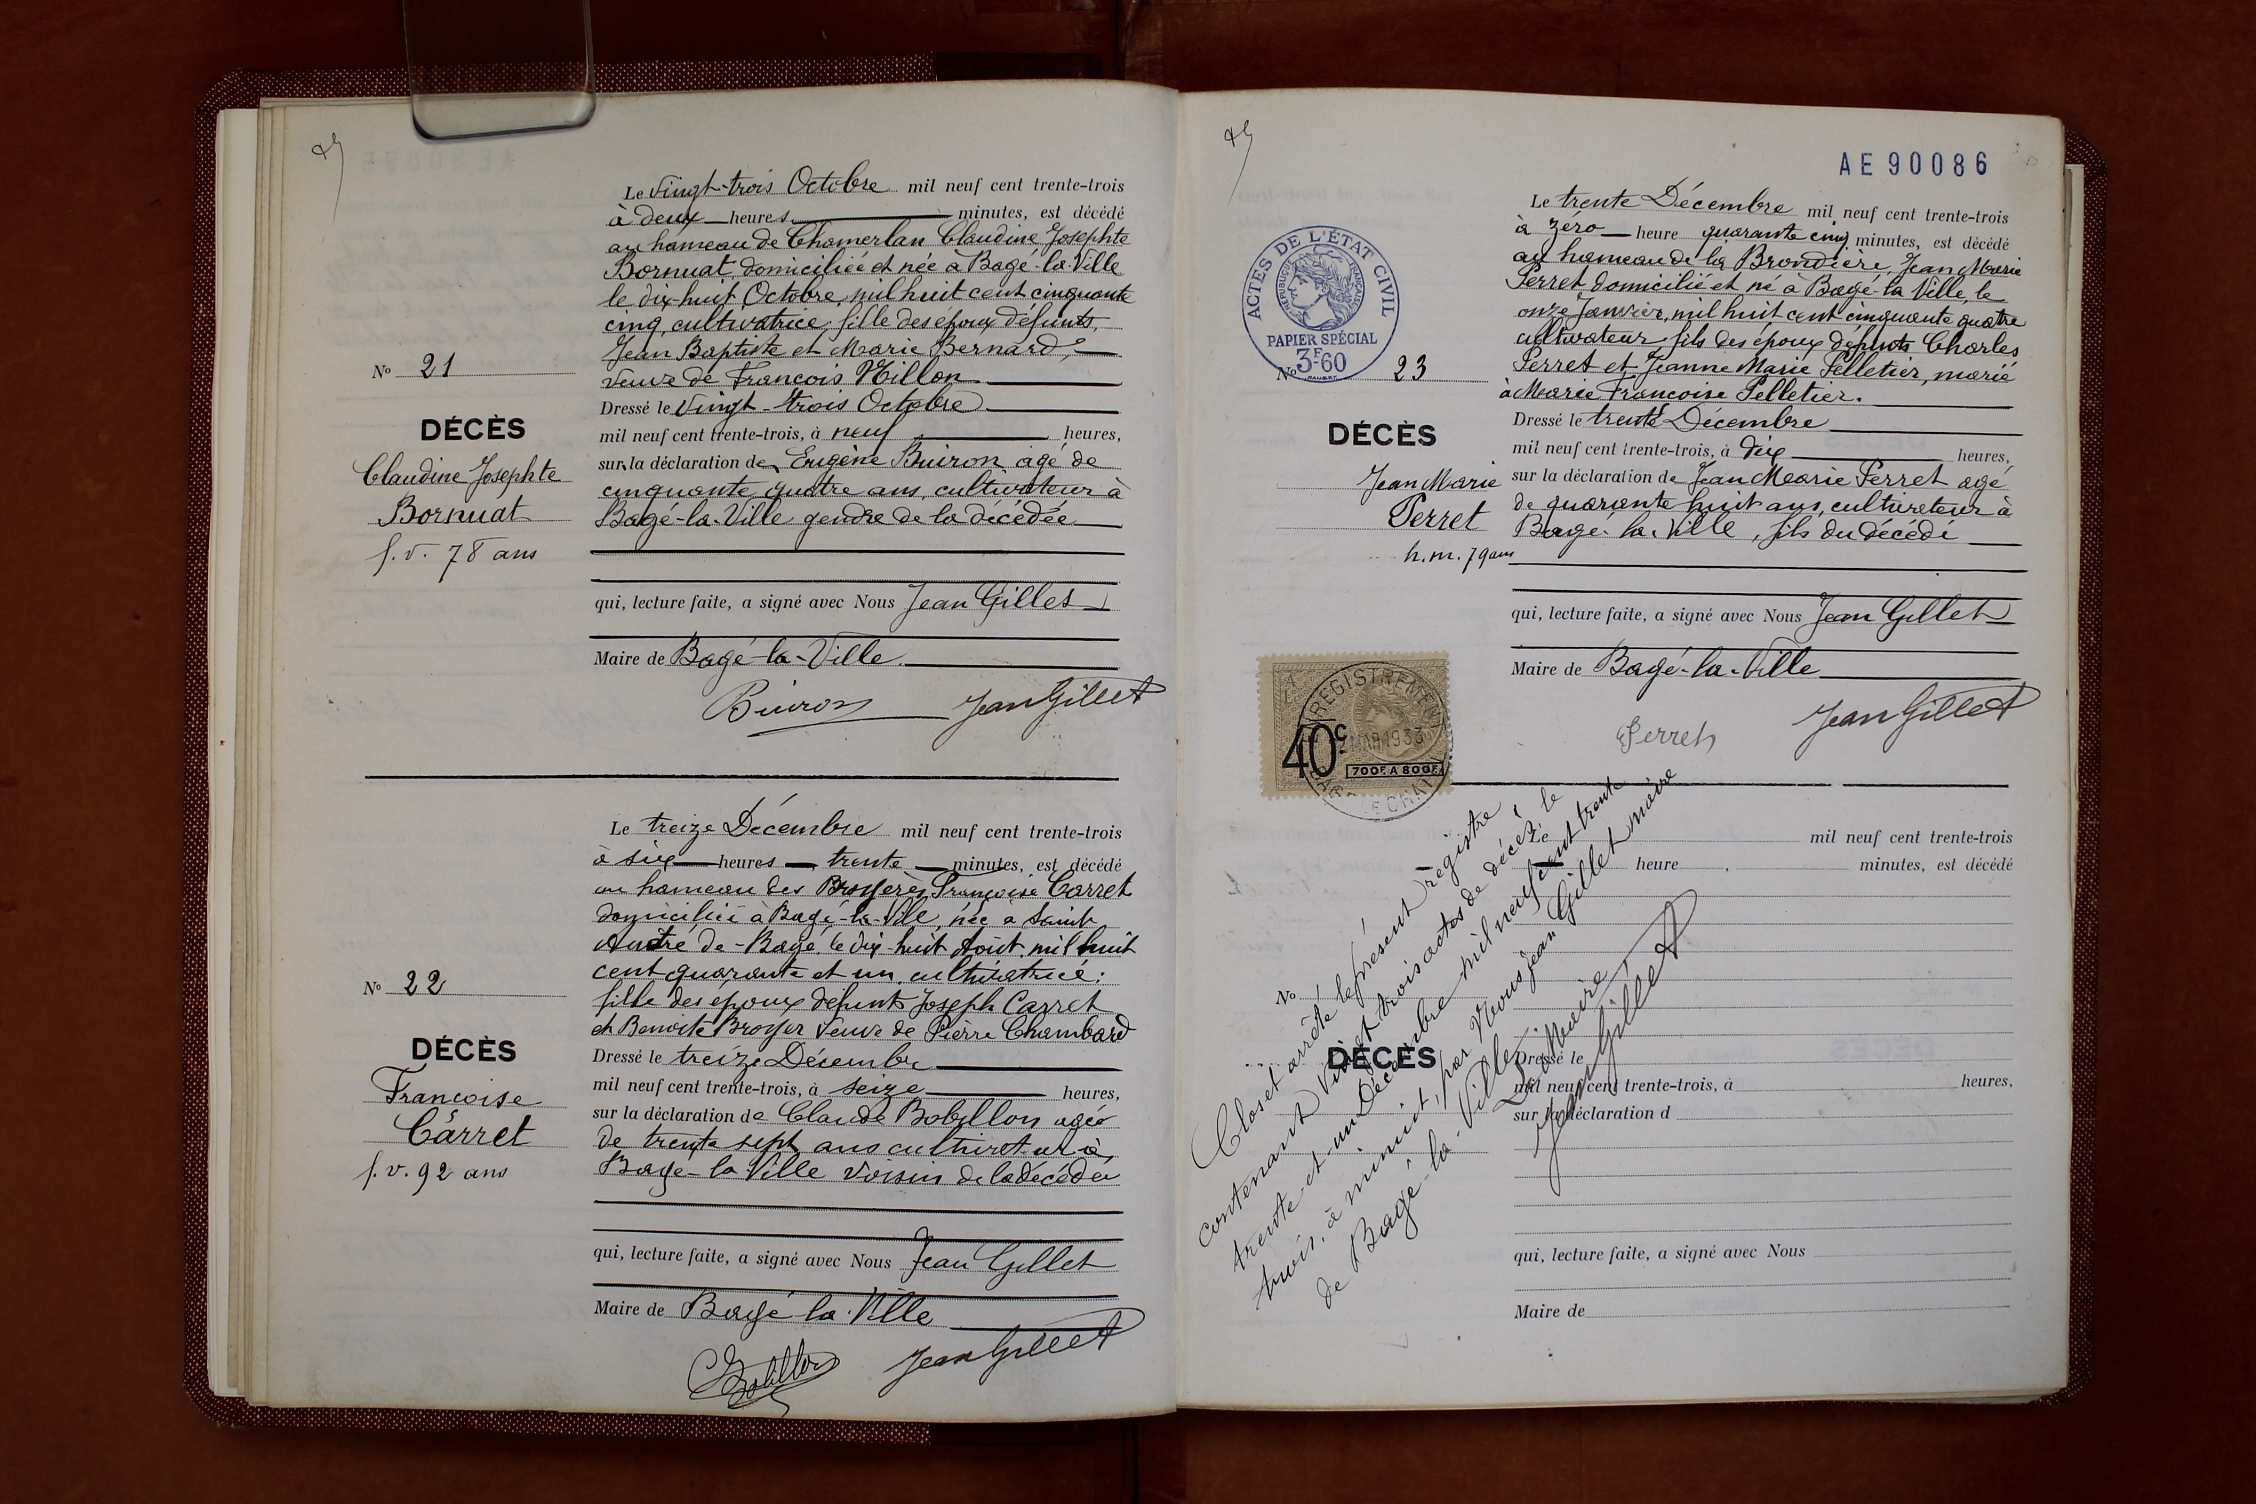 Le Vingt-trois Octobre mil neuf cent trente-trois
à deux heures minutes, est décédé
au hameau de Chamerlan Claudine Josephte
Bornuat domiciliée et née à Bagé-la-Ville
le dix-huit Octobre mil huit cent cinquante
cinq, cultivatrice, fille des époux défunts
Jean Baptiste et Marie Bernard,
veuve de François Nillon
No 21
DÉCÈS
Claudine Josephte
Bornuat
f.v. 78 ans
Dressé le Vingt-trois Octobre
mil neuf cent trente-trois, à neuf heures,
sur la déclaration de Eugène Buiron âgé de
cinquante quatre ans, cultivateur à
Bagé-la-Ville gendre de la décédée
qui, lecture faite, a signé avec Nous Jean Gillet
Maire de Bagé-la-Ville
Buiron Jean Gillet
Le treize Décembre mil neuf cent trente-trois
à six heures trente minutes, est décédé
au hameau des Broyères Françoise Carret
domiciliée à Bagé-la-Ville, née à Saint
André-de-Bagé le dix-huit Août mil huit
cent quarante et un, cultivatrice;
fille des époux défunts Joseph Carret
et Benoite Broyer veuve de Pierre Chambard
No 22
DÉCÈS
Françoise
Carret
f.v. 92 ans
Dressé le treize Décembre
mil neuf cent trente-trois, à seize heures,
sur la déclaration de Claude Bobillon agée
de trente sept ans cultivateur à
Bagé-la-Ville voisin de la décédée
qui, lecture faite, a signé avec Nous Jean Gillet
Maire de Bagé la Ville
Bobillon Jean Gillet
AE 90086
ACTES DE L'ÉTAT CIVIL
RÉPUBLIQUE FRANÇAISE
PAPIER SPÉCIAL
3F60
Le trente Décembre mil neuf cent trente-trois
à zéro heure quarante cinq minutes, est décédé
au hameau de la Brondière, Jean Marie
Perret domicilié et né à Bagé-la-Ville, le
onze Janvier, mil huit cent cinquante quatre
cultivateur fils des époux défunts Charles
Perret et Jeanne Marie Pelletier, marié
à Marie Françoise Pelletier.
No 23
DÉCÈS
Jean Marie
Perret
h.m. 79 ans
Dressé le trente Décembre
mil neuf cent trente-trois, à dix heures,
sur la déclaration de Jean Marie Perret agé
de quarante huit ans, cultivateur à
Bagé-la-Ville, fils du décédé
qui, lecture faite, a signé avec Nous Jean Gillet
Maire de Bagé-la-Ville
Perret Jean Gillet
ENREGISTREMENT
40c
MAR 1933
700F A 800F
Clos et arrêté le présent registre
contenant Vingt trois actes de décès, le
trente et un Décembre mil neuf cent trente
trois, à minuit, par Nous Jean Gillet maire
de Bagé-la-Ville
Le Maire
Jean Gillet
Le mil neuf cent trente-trois
heure minutes, est décédé
No
DÉCÈS
Dressé le
mil neuf cent trente-trois, à heures,
sur la déclaration d
qui, lecture faite, a signé avec Nous
Maire de